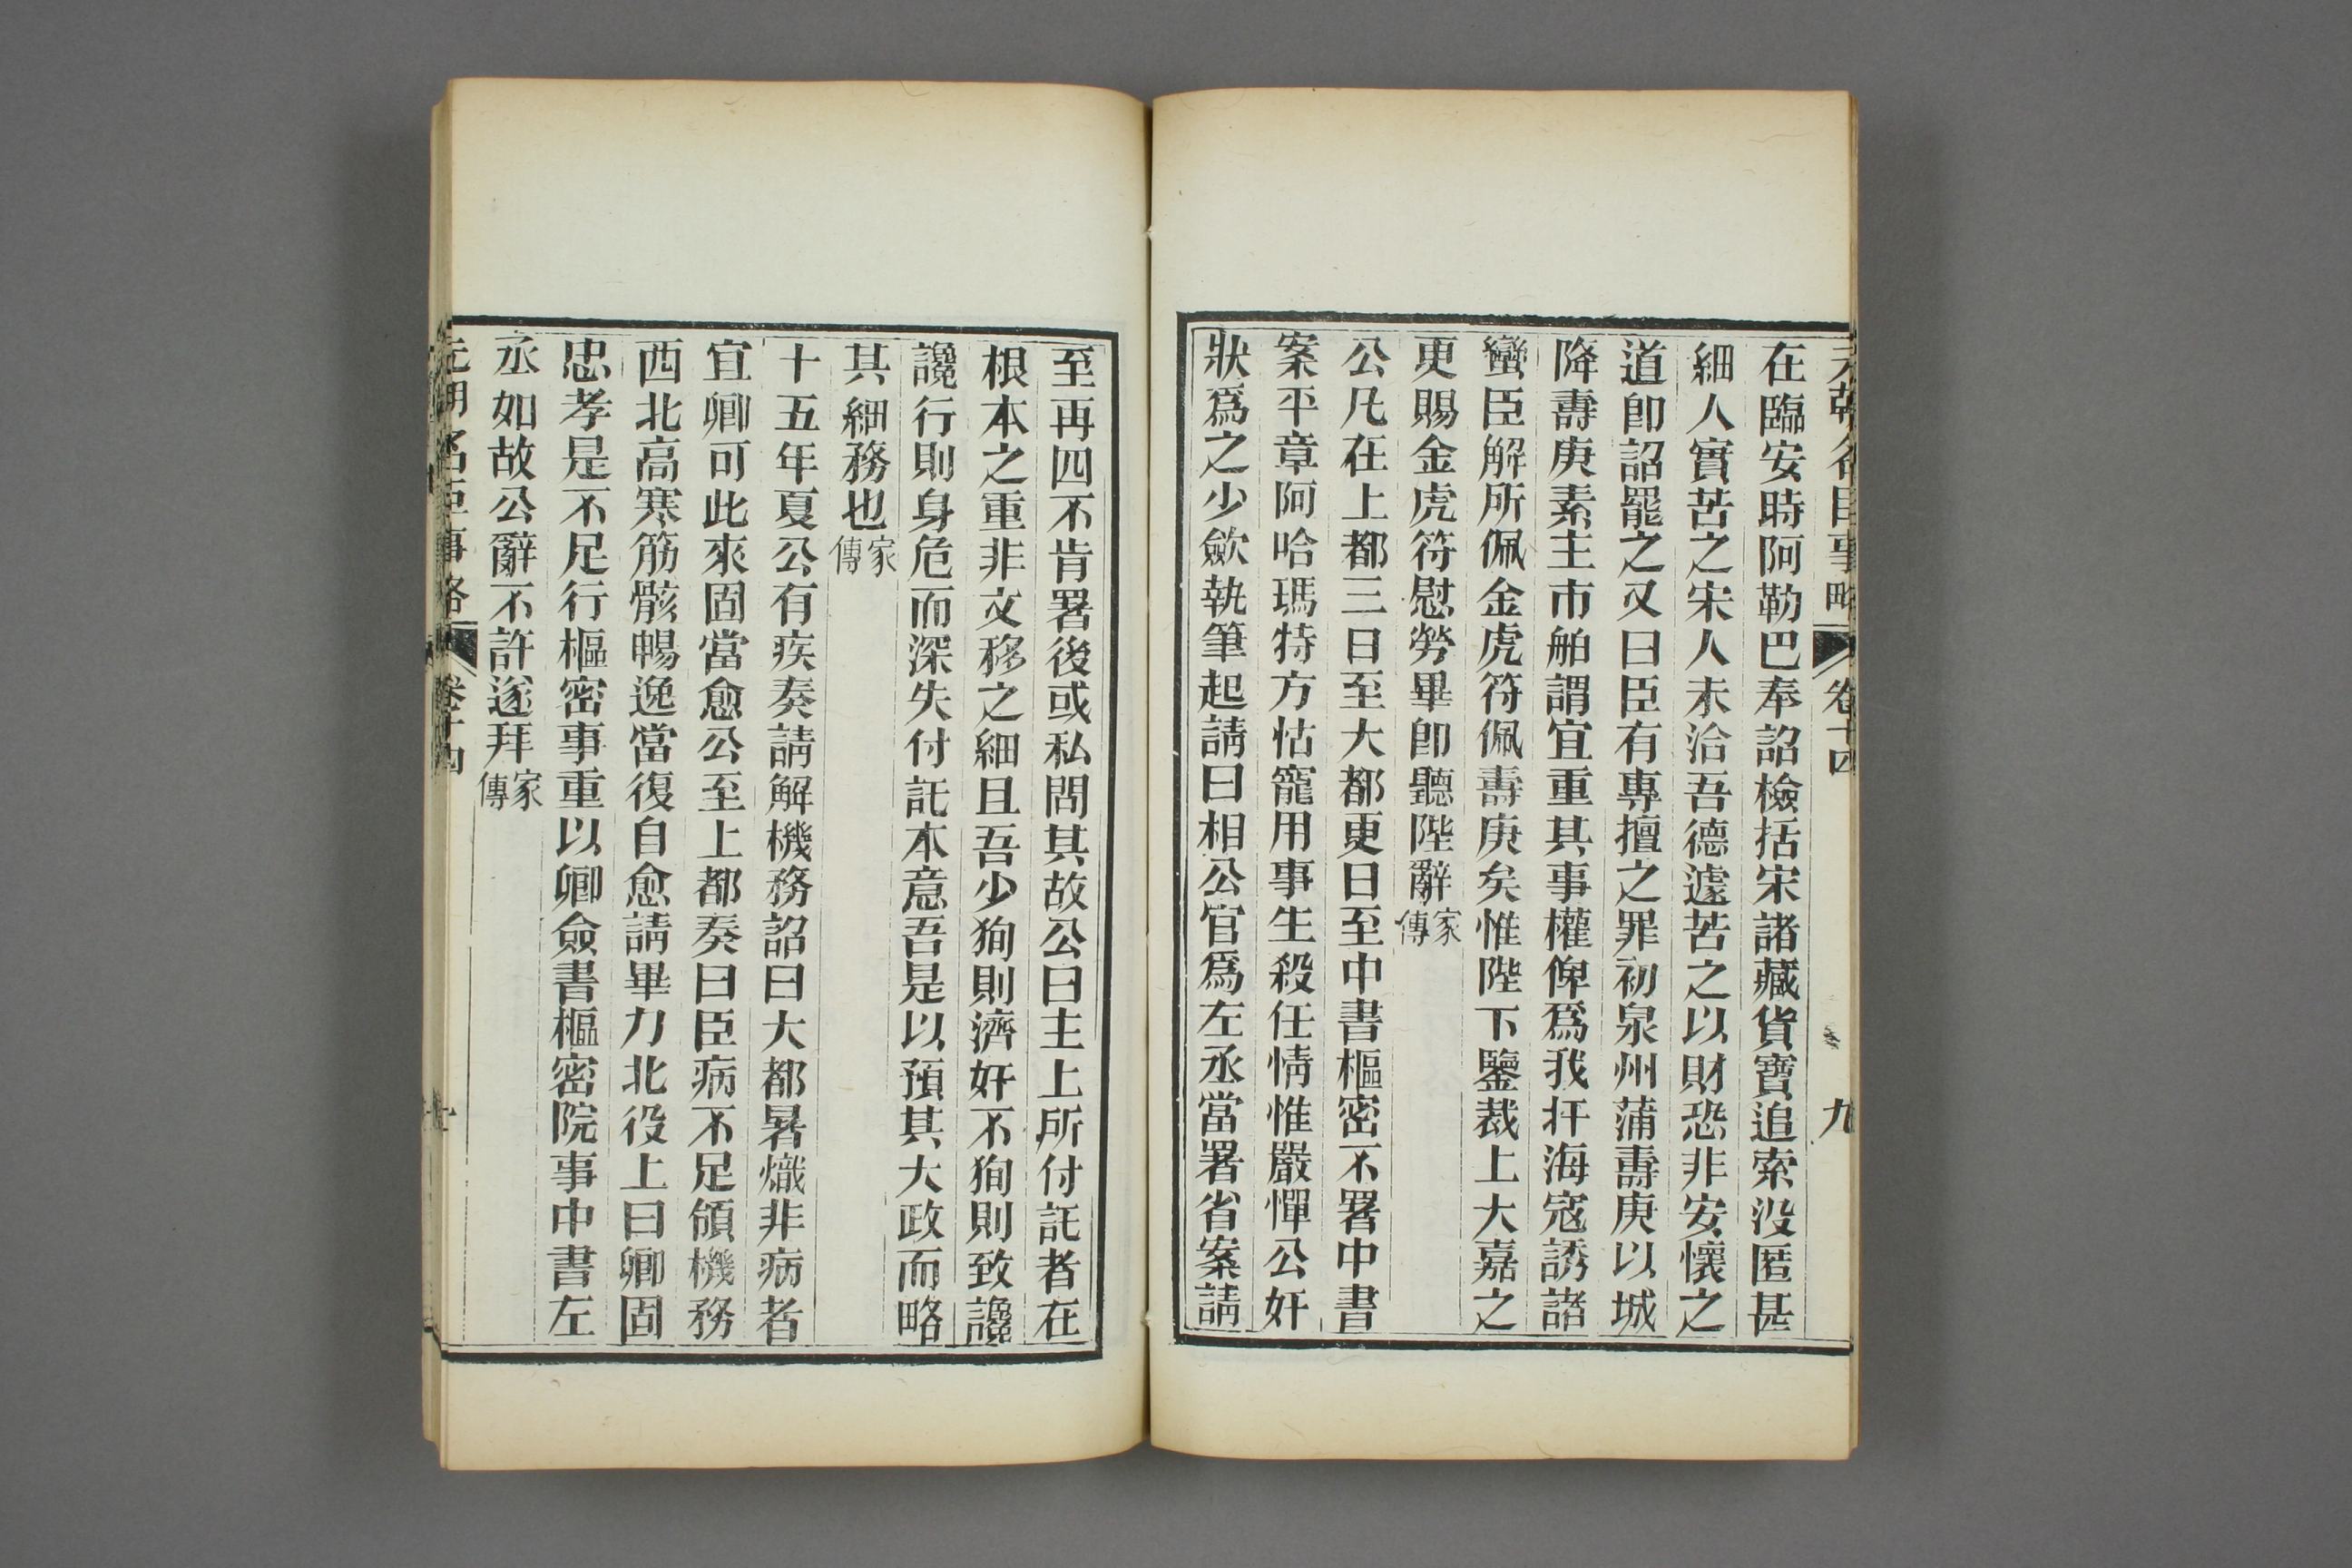 元朝名臣事略 卷十四 九
在臨安時阿勒巴奉詔檢括宋諸藏貨寶追索没匿甚
細人實苦之宋人未洽吾德遽苦之以財恐非安懷之
道卽詔罷之又曰臣有專擅之罪初泉州蒲壽庚以城
降壽庚素主市舶謂宜重其事權俾爲我扞海寇誘諸
蠻臣解所佩金虎符佩壽庚矣惟陛下鑒裁上大嘉之
更賜金虎符慰勞畢卽聽陛辭家傳
公凡在上都三日至大都更日至中書樞密不署中書
案平章阿哈瑪特方怙寵用事生殺任情惟嚴憚公奸
狀爲之少歛執筆起請曰相公官爲左丞當署省案請
至再四不肯署後或私問其故公曰主上所付託者在
根本之重非文移之細且吾少狥則濟奸不狥則致讒
讒行則身危而深失付託本意吾是以預其大政而略
其細務也家傳
十五年夏公有疾奏請解機務詔曰大都暑熾非病者
宜卿可此來固當愈公至上都奏曰臣病不足頷機務
西北高寒筋骸暢逸當復自愈請畢力北役上曰卿固
忠孝是不足行樞密事重以卿僉書樞密院事中書左
丞如故公辭不許遂拜家傳
元朝名臣事略 卷十四